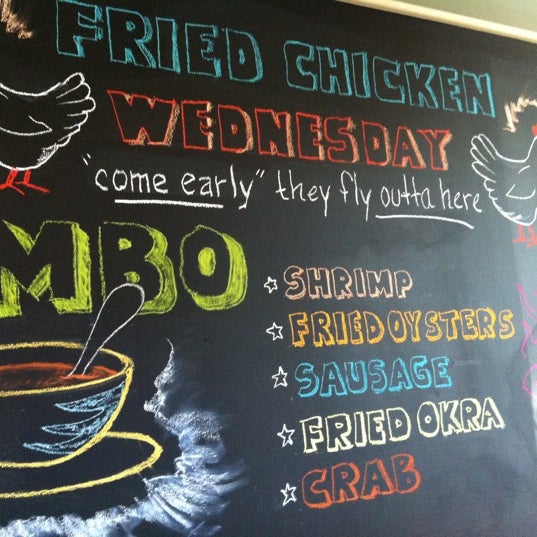 FRIED CHICKEN
WEDNESDAY
"come early" they fly outta here
MBO
SHRIMP
FRIED OYSTERS
SAUSAGE
FRIED OKRA
CRAB